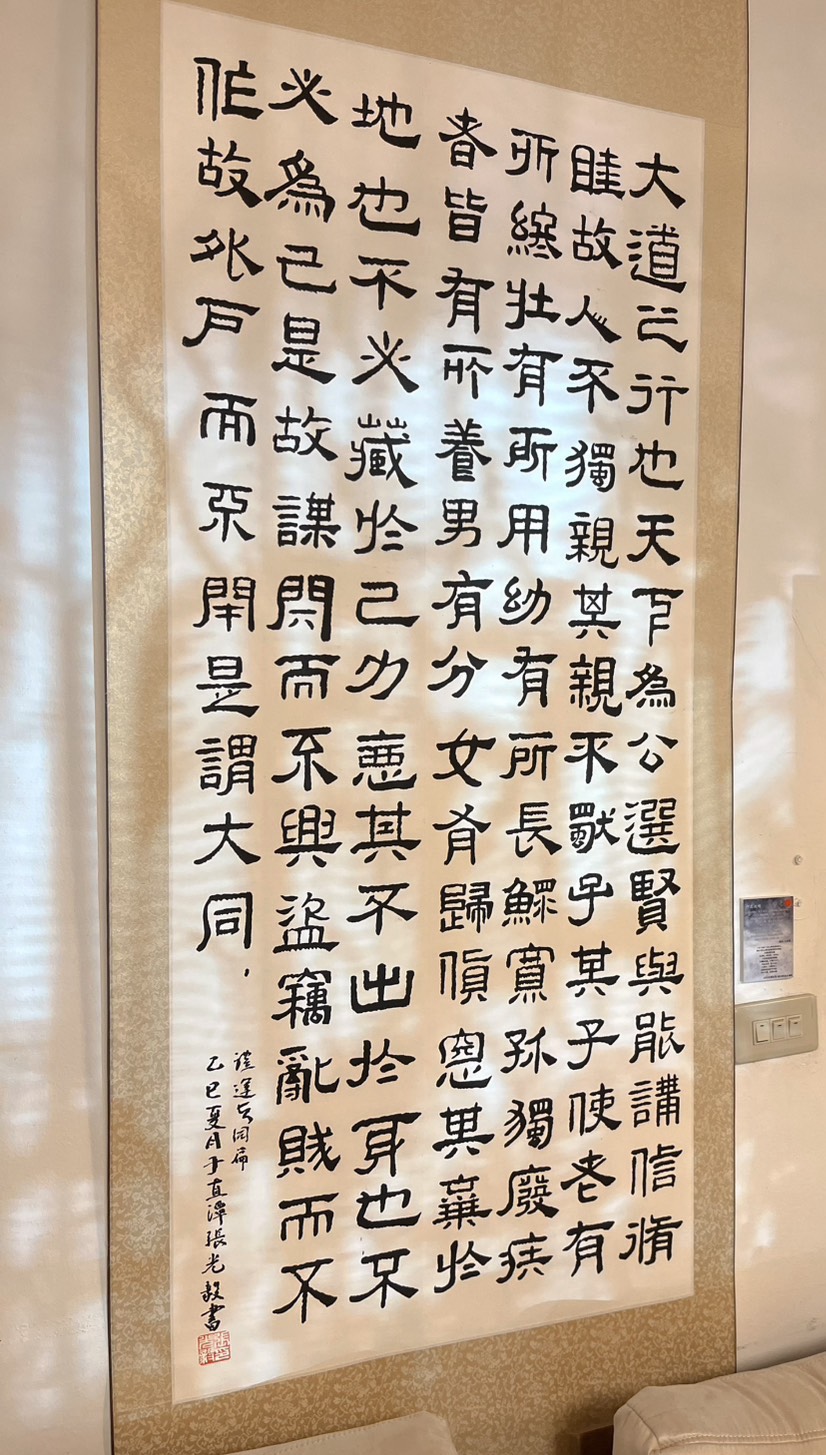 大道之行也天下為公選賢與能講信脩
睦故人不獨親其親不獨子其子使老有
所終壯有所用幼有所長鰥寡孤獨廢疾
者皆有所養男有分女有歸貨惡其棄於
地也不必藏於己力惡其不出於身也不
必為己是故謀閉而不興盜竊亂賊而不
作故外戶而不閉是謂大同，
禮運大同篇
乙巳夏月于直潭張光毅書